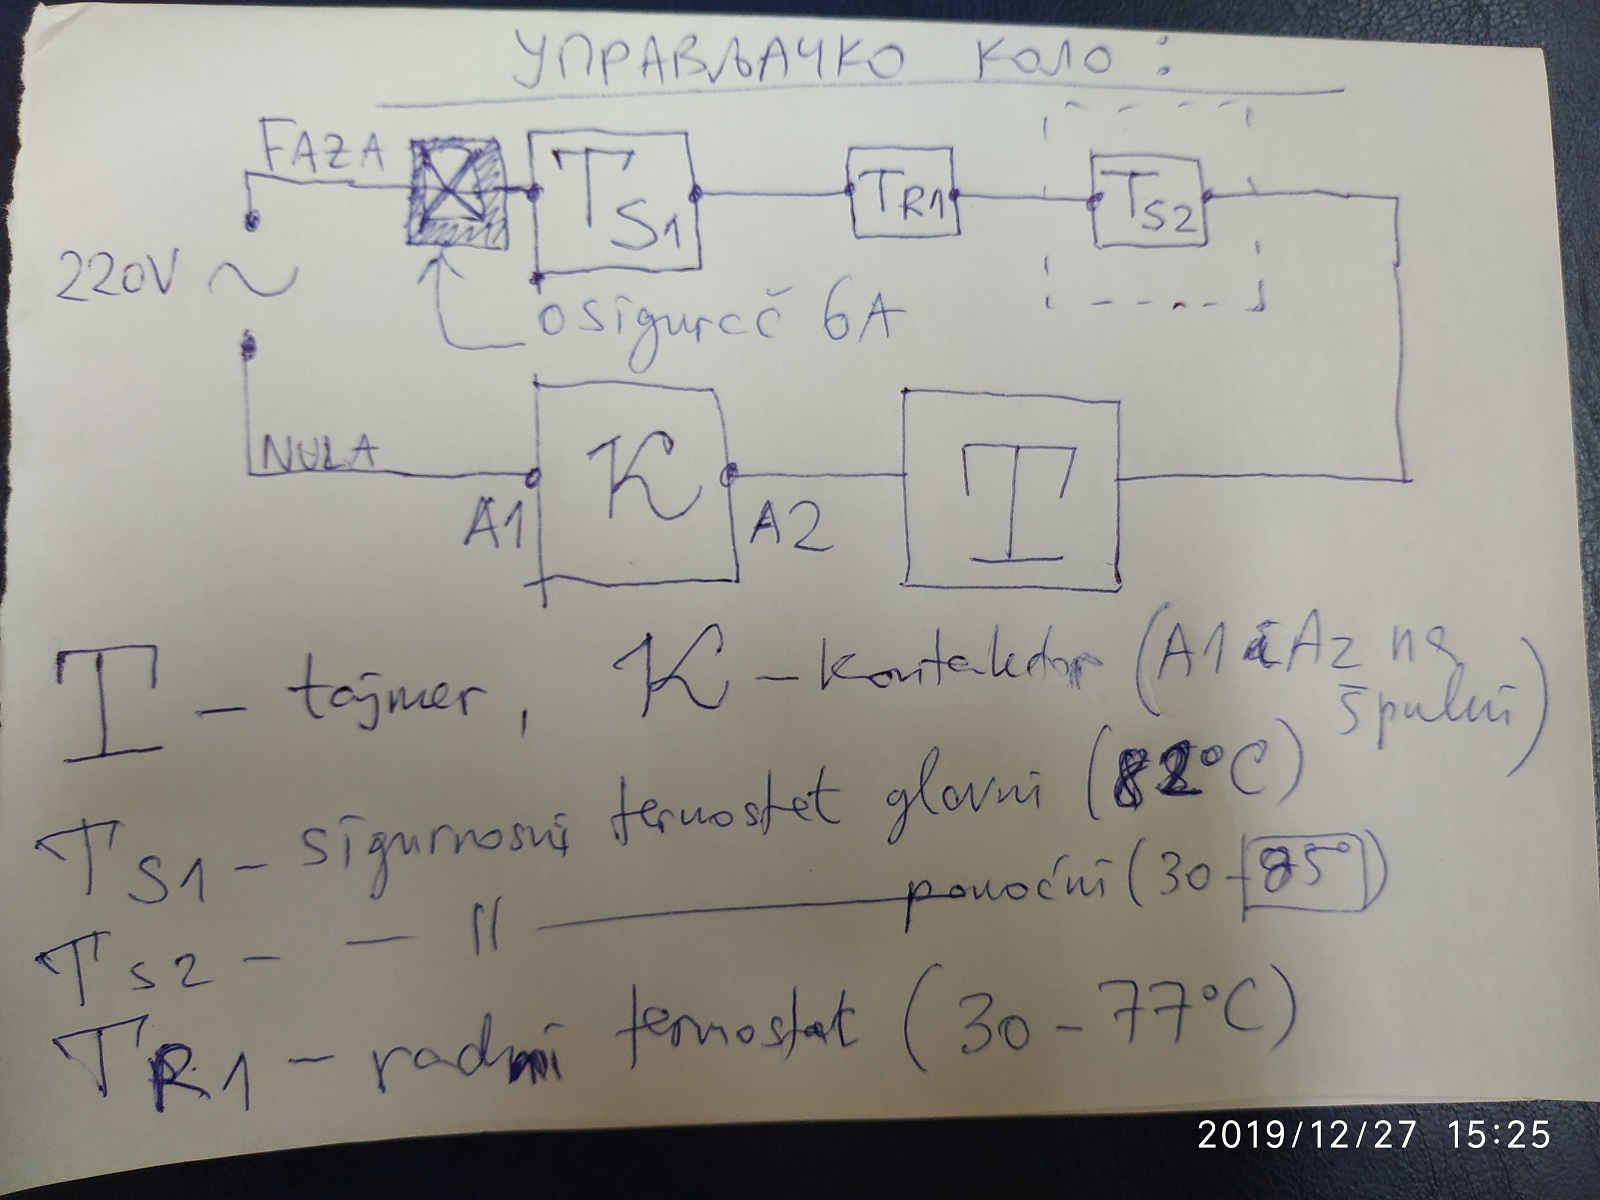 УПРАВЉАЧКО КОЛО :
FAZA
TS1
TR1
TS2
220V ~
osigurač 6A
NULA
K
T
A1
A2
T - tajmer, K - kontaktor (A1 i A2 na
špulni)
TS1 - sigurnosni termostat glavni (82°C)
TS2 - — || — pomoćni (30-85°)
TR1 - radni termostat (30-77°C)
2019/12/27 15:25